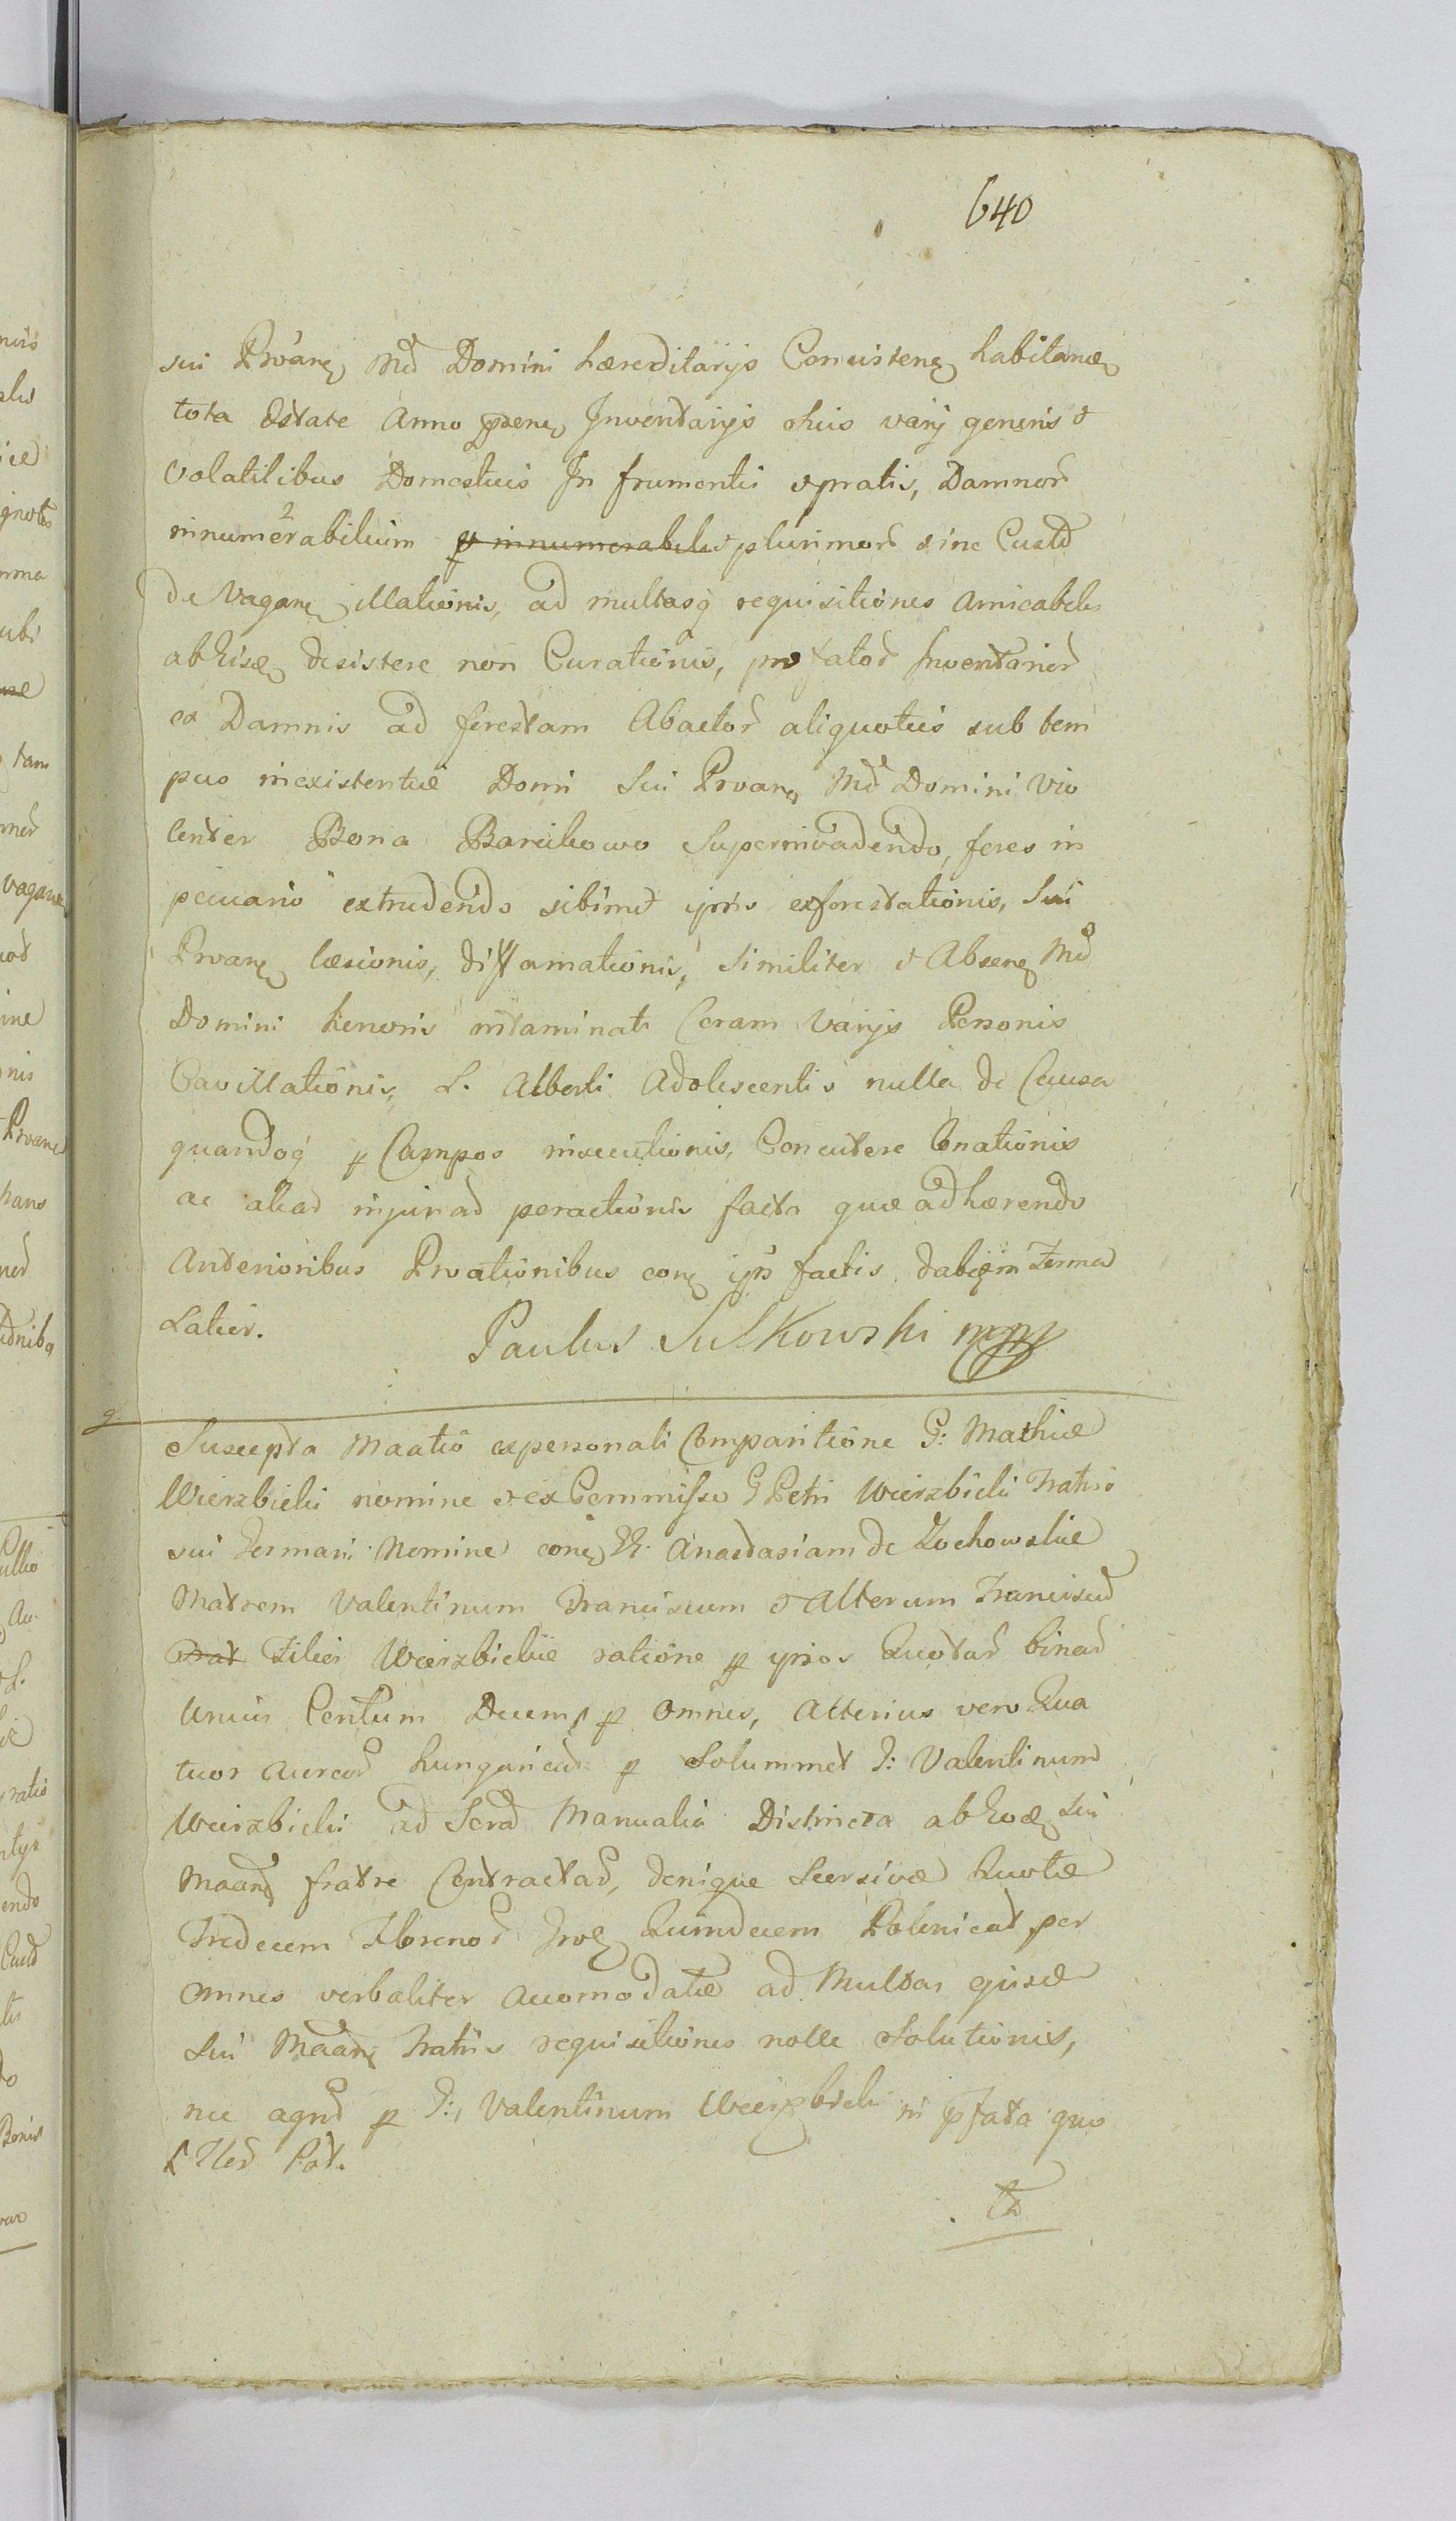 640
sui Proãne Md Domini hæreditarys Concistene habitane
tota Æstate Anno præsene Inventarys suis varij generis et
volatilibus Domesticis In frumentis et pratis, Damnor
innumerabilium et innumerabiles plurimor sine Custd
de Vagane illationis, ad multasq requisitiones Amicabiles
abhise desistere non Curationis, præfator Inventarior
ex Damnis ad forestam Abactor aliquoties sub tem
pus inexistentiæ Domi Sui Proane Md Domini Vio
lenter Bona Barcikowo Superinvadendo, fores in
pecuario extrudendo sibimet ipsis exforestationis, Sui
Proane læsionis, diffamationis, similiter et Absene Md
Domini honoris intaminati Coram Varys Personis
Cavillationis, L. Alberti Adolescentis nulla de Causa
quandoq p Campos insecutionis, Concutere Conationis
ac aliad injuriad peractionis facta quæ adhærendo
Anterioribus Proationibus cone ips factis dabit in Termo
Latius.
Paulus Sulkowski mpp
Suscepta Maatio ex personali Comparitione G: Mathiæ
Wierzbicki nomine et ex Commisso G Petri Wierzbicki Fratris
sui Germani Nomine cone G. Anastasiam de Zochowskie
Matrem Valentinum Franciscum et Alterum Franciscu
Frat Filios Wierzbickie ratione p ipsos Quotar binar
Unius Centum Decem p omnes, Alterius vero Qua
tuor Aureor Hungaricar p Solummet G: Valentinum
Wierzbicki ad Scrd Manualia Distincta ab hoc Sui
Maane fratre Contractar, denique Seorsivæ Quotæ
Tredecem Florenor Quindecem Polonical per
omnes verbaliter accomodatæ ad Multas ejusce
Sui Maane Fratris requisitiones nolle Solutionis,
nec agnd p G:, Valentinum Wierzbicki in pfata quo